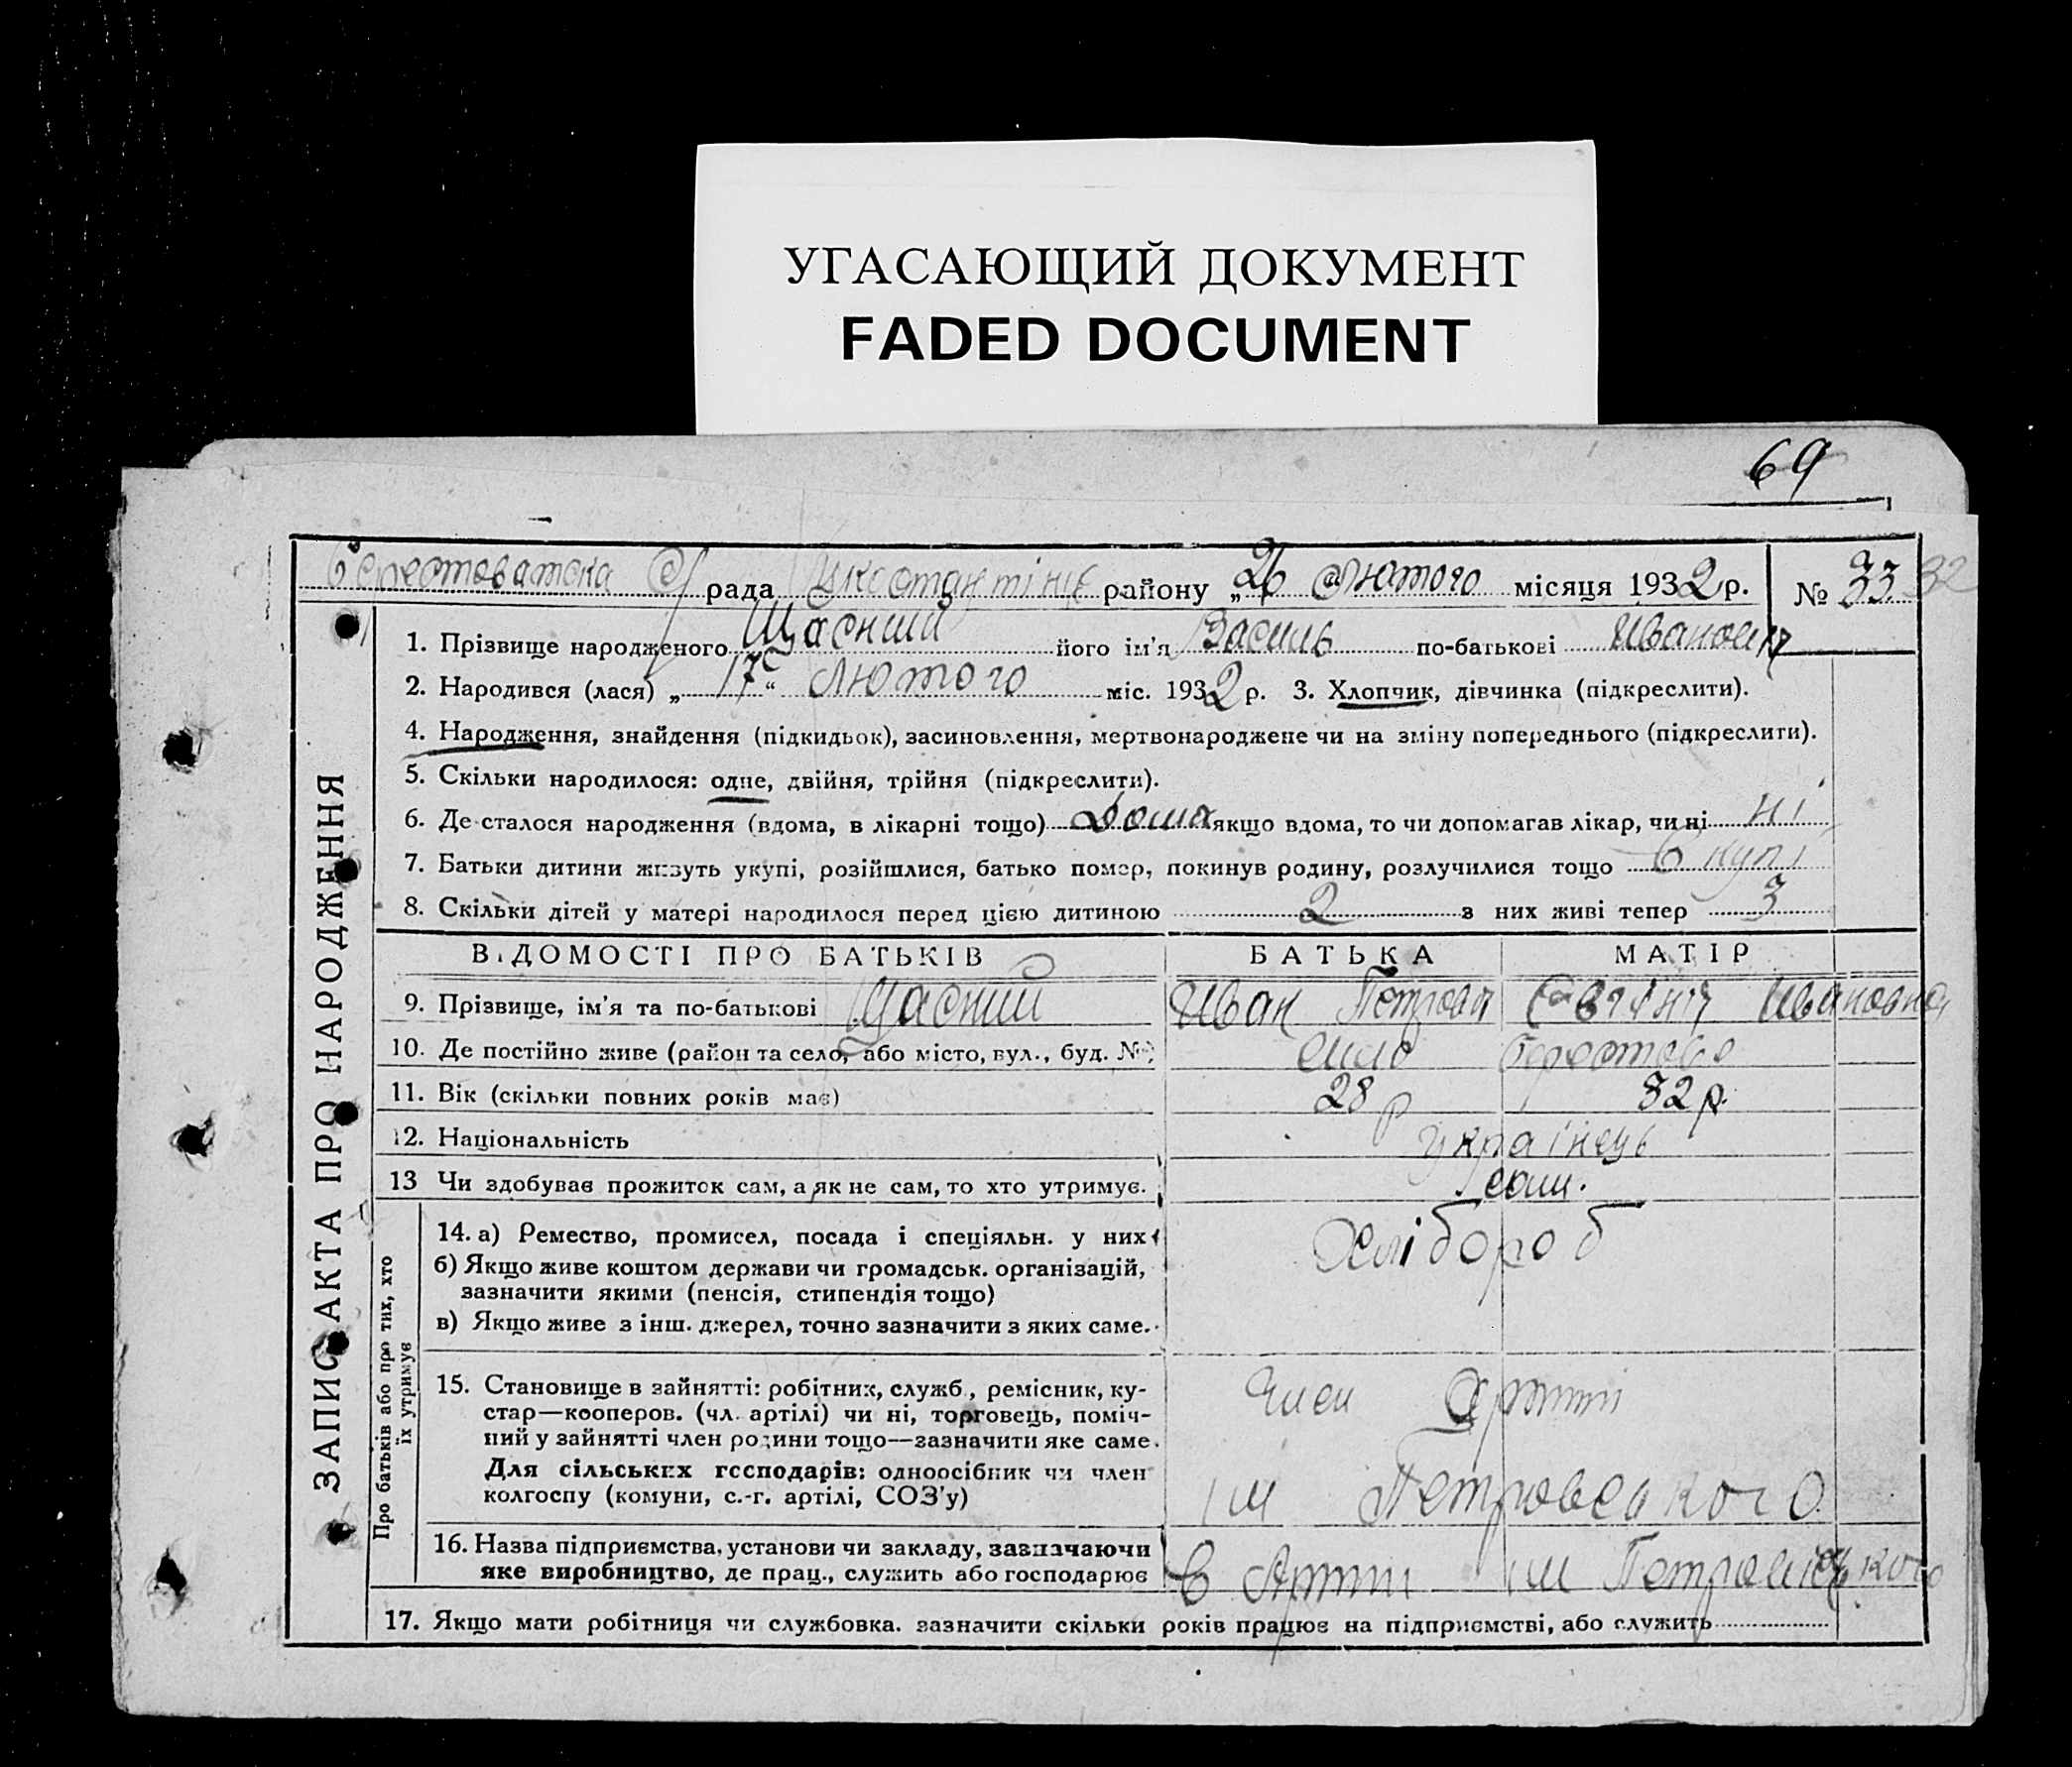 УГАСАЮЩИЙ ДОКУМЕНТ
FADED DOCUMENT
69
рада району „26 лютого місяця 1932 р. № 33 32
ЗАПИС АКТА ПРО НАРОДЖЕННЯ
1. Прізвище народженого Щасний його ім'я Василь по-батькові
2. Народився (лася) „17“ лютого міс. 1932 р. 3. Хлопчик, дівчинка (підкреслити).
4. Народження, знайдення (підкидьок), засиновлення, мертвонароджене чи на зміну попереднього (підкреслити).
5. Скільки народилося: одне, двійня, трійня (підкреслити).
6. Де сталося народження (вдома, в лікарні тощо) Дома якщо вдома, то чи допомагав лікар, чи ні ні
7. Батьки дитини живуть укупі, розійшлися, батько помер, покинув родину, розлучилися тощо Вкупі
8. Скільки дітей у матері народилося перед цією дитиною 2 з них живі тепер 3
ВІДОМОСТІ ПРО БАТЬКІВ БАТЬКА МАТІР
9. Прізвище, ім'я та по-батькові Щасний Иван Ивановна
10. Де постійно живе (район та село, або місто, вул., буд. №) село
11. Вік (скільки повних років має) 28 р 32 р.
12. Національність українець
13 Чи здобуває прожиток сам, а як не сам, то хто утримує. сам.
Про батьків або про тих, хто їх утримує
14. а) Ремество, промисел, посада і спеціяльн. у них Хлібороб
б) Якщо живе коштом держави чи громадськ. організацій,
зазначити якими (пенсія, стипендія тощо)
в) Якщо живе з інш. джерел, точно зазначити з яких саме.
15. Становище в зайнятті: робітник, служб., ремісник, ку-
стар—кооперов. (чл. артілі) чи ні, торговець, поміч-
ний у зайнятті член родини тощо—зазначити яке саме.
Для сільських господарів: одноосібник чи член
колгоспу (комуни, с.-г. артілі, СОЗ'у)
член Артілі
ім Петровського
16. Назва підприємства, установи чи закладу, зазначаючи
яке виробництво, де прац., служить або господарює
В Артілі ім Петровського
17. Якщо мати робітниця чи службовка. зазначити скільки років працює на підприємстві, або служить